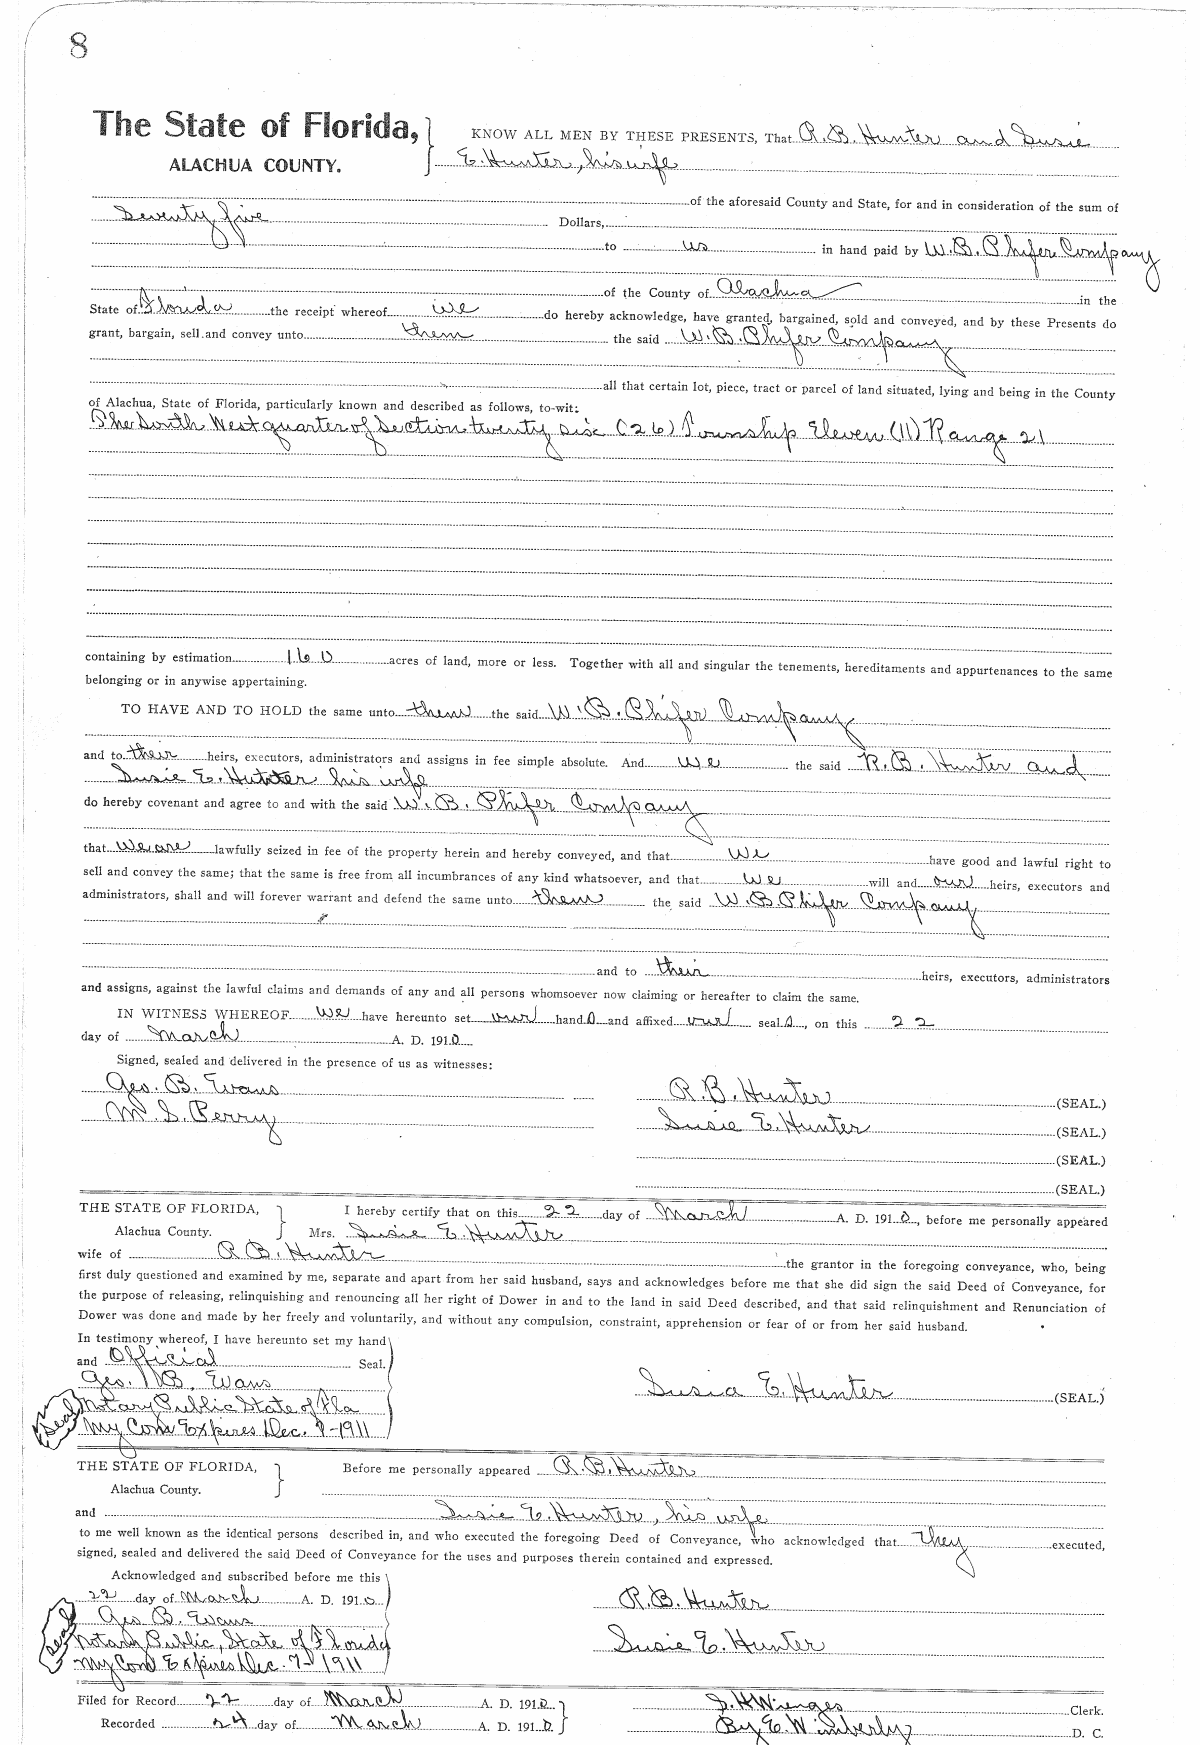 8
The State of Florida,
ALACHUA COUNTY.
KNOW ALL MEN BY THESE PRESENTS, That R. B. Hunter and Susie
E. Hunter, his wife
of the aforesaid County and State, for and in consideration of the sum of
Seventy five Dollars,
to us in hand paid by W. B. Phifer Company
of the County of Alachua in the
State of Florida the receipt whereof we do hereby acknowledge, have granted, bargained, sold and conveyed, and by these Presents do
grant, bargain, sell and convey unto them the said W. B. Phifer Company
all that certain lot, piece, tract or parcel of land situated, lying and being in the County
of Alachua, State of Florida, particularly known and described as follows, to-wit:
The South West quarter of Section twenty six (26) Township Eleven (11) Range 21
containing by estimation 160 acres of land, more or less. Together with all and singular the tenements, hereditaments and appurtenances to the same
belonging or in anywise appertaining.
TO HAVE AND TO HOLD the same unto them the said W. B. Phifer Company
and to their heirs, executors, administrators and assigns in fee simple absolute. And we the said R. B. Hunter and
Susie E. Hunter his wife
do hereby covenant and agree to and with the said W. B. Phifer Company
that we are lawfully seized in fee of the property herein and hereby conveyed, and that we have good and lawful right to
sell and convey the same; that the same is free from all incumbrances of any kind whatsoever, and that we will and our heirs, executors and
administrators, shall and will forever warrant and defend the same unto them the said W. B Phifer Company
and to their heirs, executors, administrators
and assigns, against the lawful claims and demands of any and all persons whomsoever now claiming or hereafter to claim the same.
IN WITNESS WHEREOF we have hereunto set our hands and affixed our seals, on this 22
day of March A. D. 1910
Signed, sealed and delivered in the presence of us as witnesses:
Geo. B. Evans R. B. Hunter (SEAL.)
M. S. Perry Susie E. Hunter (SEAL.)
(SEAL.)
(SEAL.)
THE STATE OF FLORIDA,
Alachua County.
I hereby certify that on this 22 day of March A. D. 1910, before me personally appeared
Mrs. Susie E. Hunter
wife of R. B. Hunter the grantor in the foregoing conveyance, who, being
first duly questioned and examined by me, separate and apart from her said husband, says and acknowledges before me that she did sign the said Deed of Conveyance, for
the purpose of releasing, relinquishing and renouncing all her right of Dower in and to the land in said Deed described, and that said relinquishment and Renunciation of
Dower was done and made by her freely and voluntarily, and without any compulsion, constraint, apprehension or fear of or from her said husband.
In testimony whereof, I have hereunto set my hand
and Official Seal.
Geo. B. Evans Susie E. Hunter (SEAL.)
Seal Notary Public State of Fla
My Com Expires Dec. 7-1911
THE STATE OF FLORIDA,
Alachua County.
Before me personally appeared R. B. Hunter
and Susie E. Hunter, his wife
to me well known as the identical persons described in, and who executed the foregoing Deed of Conveyance, who acknowledged that they executed,
signed, sealed and delivered the said Deed of Conveyance for the uses and purposes therein contained and expressed.
Acknowledged and subscribed before me this
22 day of March A. D. 1910 R. B. Hunter
Geo B. Evans
Seal Notary Public, State of Florida Susie E. Hunter
My Com Expires Dec. 7-1911
Filed for Record 22 day of March A. D. 1910 S. H Wienges Clerk.
Recorded 24 day of March A. D. 1910 By E. Wimberly D. C.